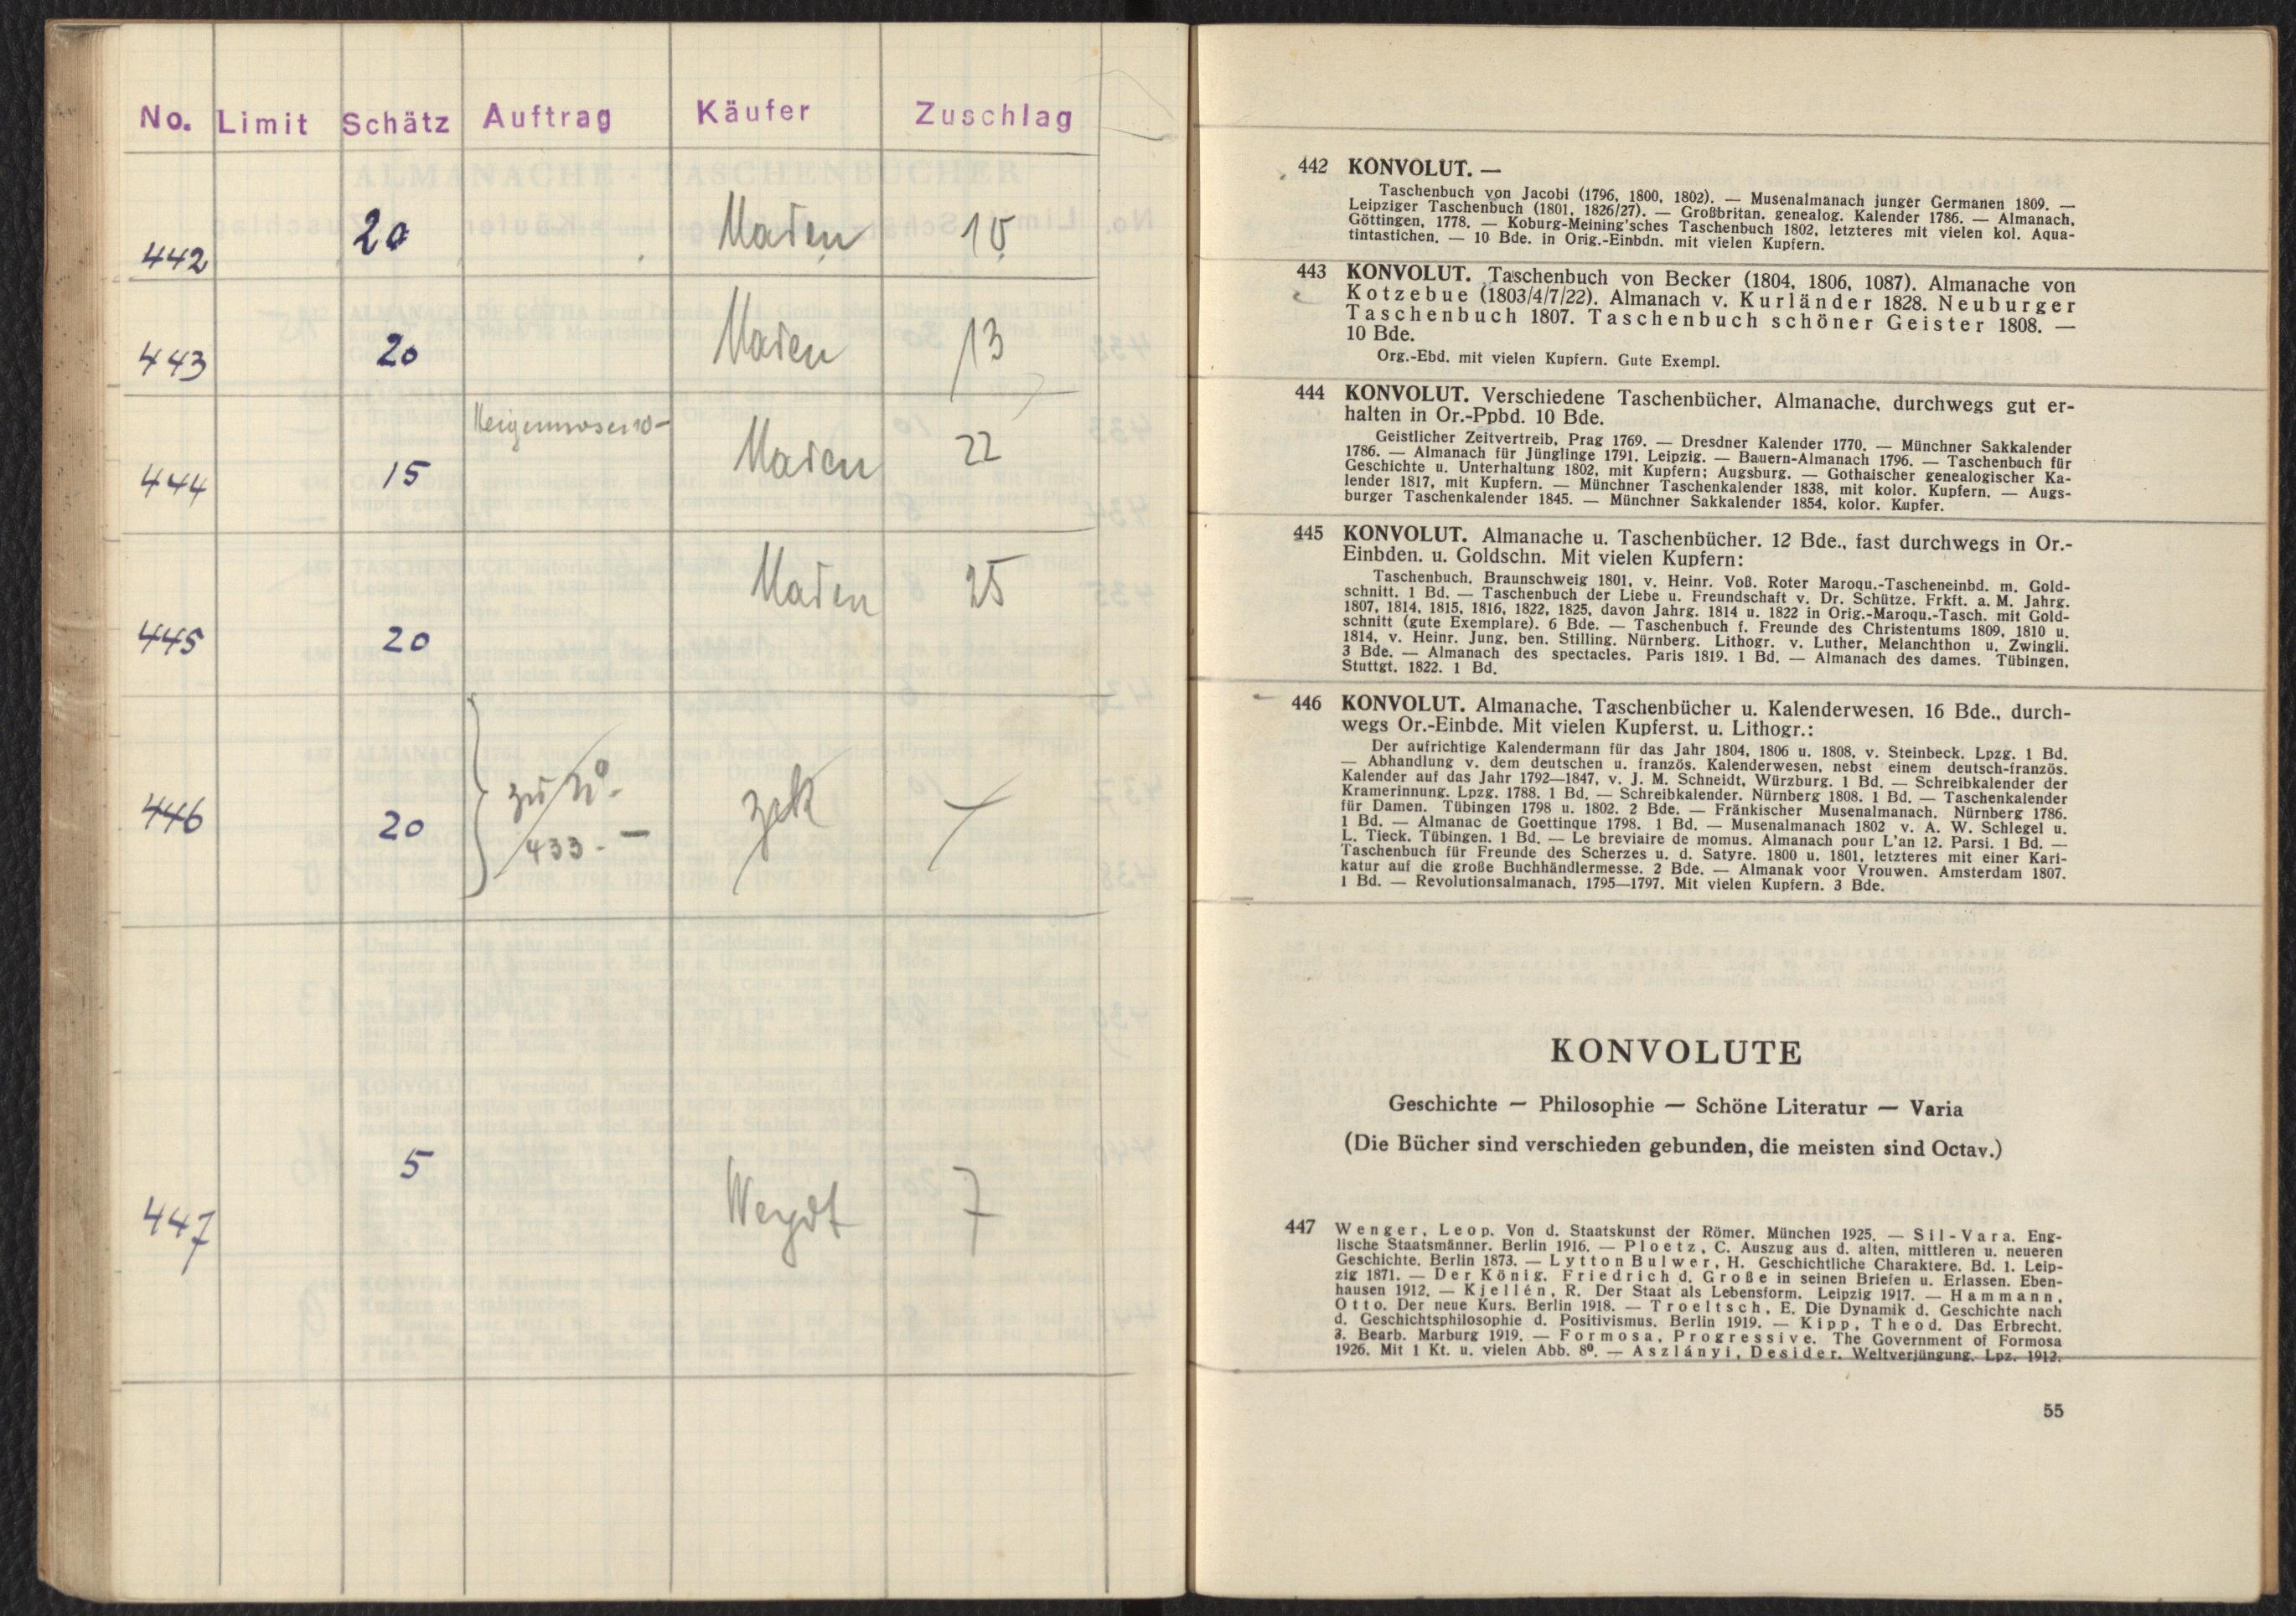 No. Limit Schätz Auftrag Käufer Zuschlag
442 20
443 20 13
444 15 22
445 20 25
446 20 zu No. 433.- zck
447 5 Weydt 7
442 KONVOLUT. —
Taschenbuch von Jacobi (1796, 1800, 1802). — Musenalmanach junger Germanen 1809. —
Leipziger Taschenbuch (1801, 1826/27). — Großbritan. genealog. Kalender 1786. — Almanach,
Göttingen, 1778. — Koburg-Meining'sches Taschenbuch 1802, letzteres mit vielen kol. Aqua-
tintastichen. — 10 Bde. in Orig.-Einbdn. mit vielen Kupfern.
443 KONVOLUT. Taschenbuch von Becker (1804, 1806, 1087). Almanache von
Kotzebue (1803/4/7/22). Almanach v. Kurländer 1828. Neuburger
Taschenbuch 1807. Taschenbuch schöner Geister 1808. —
10 Bde.
Org.-Ebd. mit vielen Kupfern. Gute Exempl.
444 KONVOLUT. Verschiedene Taschenbücher, Almanache, durchwegs gut er-
halten in Or.-Ppbd. 10 Bde.
Geistlicher Zeitvertreib, Prag 1769. — Dresdner Kalender 1770. — Münchner Sakkalender
1786. — Almanach für Jünglinge 1791. Leipzig. — Bauern-Almanach 1796. — Taschenbuch für
Geschichte u. Unterhaltung 1802, mit Kupfern; Augsburg. — Gothaischer genealogischer Ka-
lender 1817, mit Kupfern. — Münchner Taschenkalender 1838, mit kolor. Kupfern. — Augs-
burger Taschenkalender 1845. — Münchner Sakkalender 1854, kolor. Kupfer.
445 KONVOLUT. Almanache u. Taschenbücher. 12 Bde., fast durchwegs in Or.-
Einbden. u. Goldschn. Mit vielen Kupfern:
Taschenbuch, Braunschweig 1801, v. Heinr. Voß. Roter Maroqu.-Tascheneinbd. m. Gold-
schnitt. 1 Bd. — Taschenbuch der Liebe u. Freundschaft v. Dr. Schütze. Frkft. a. M. Jahrg.
1807, 1814, 1815, 1816, 1822, 1825, davon Jahrg. 1814 u. 1822 in Orig.-Maroqu.-Tasch. mit Gold-
schnitt (gute Exemplare). 6 Bde. — Taschenbuch f. Freunde des Christentums 1809, 1810 u.
1814, v. Heinr. Jung, ben. Stilling. Nürnberg. Lithogr. v. Luther, Melanchthon u. Zwingli.
3 Bde. — Almanach des spectacles. Paris 1819. 1 Bd. — Almanach des dames. Tübingen,
Stuttgt. 1822. 1 Bd.
446 KONVOLUT. Almanache, Taschenbücher u. Kalenderwesen. 16 Bde., durch-
wegs Or.-Einbde. Mit vielen Kupferst. u. Lithogr.:
Der aufrichtige Kalendermann für das Jahr 1804, 1806 u. 1808, v. Steinbeck. Lpzg. 1 Bd.
— Abhandlung v. dem deutschen u. französ. Kalenderwesen, nebst einem deutsch-französ.
Kalender auf das Jahr 1792—1847, v. J. M. Schneidt, Würzburg. 1 Bd. — Schreibkalender der
Kramerinnung. Lpzg. 1788. 1 Bd. — Schreibkalender. Nürnberg 1808. 1 Bd. — Taschenkalender
für Damen. Tübingen 1798 u. 1802. 2 Bde. — Fränkischer Musenalmanach. Nürnberg 1786.
1 Bd. — Almanac de Goettinque 1798. 1 Bd. — Musenalmanach 1802 v. A. W. Schlegel u.
L. Tieck. Tübingen. 1 Bd. — Le breviaire de momus. Almanach pour L'an 12. Parsi. 1 Bd. —
Taschenbuch für Freunde des Scherzes u. d. Satyre. 1800 u. 1801, letzteres mit einer Kari-
katur auf die große Buchhändlermesse. 2 Bde. — Almanak voor Vrouwen. Amsterdam 1807.
1 Bd. — Revolutionsalmanach. 1795—1797. Mit vielen Kupfern. 3 Bde.
KONVOLUTE
Geschichte — Philosophie — Schöne Literatur — Varia
(Die Bücher sind verschieden gebunden, die meisten sind Octav.)
447 Wenger, Leop. Von d. Staatskunst der Römer. München 1925. — Sil-Vara. Eng-
lische Staatsmänner. Berlin 1916. — Ploetz, C. Auszug aus d. alten, mittleren u. neueren
Geschichte. Berlin 1873. — Lytton Bulwer, H. Geschichtliche Charaktere. Bd. 1. Leip-
zig 1871. — Der König. Friedrich d. Große in seinen Briefen u. Erlassen. Eben-
hausen 1912. — Kjellén, R. Der Staat als Lebensform. Leipzig 1917. — Hammann,
Otto. Der neue Kurs. Berlin 1918. — Troeltsch, E. Die Dynamik d. Geschichte nach
d. Geschichtsphilosophie d. Positivismus. Berlin 1919. — Kipp, Theod. Das Erbrecht.
3. Bearb. Marburg 1919. — Formosa, Progressive. The Government of Formosa
1926. Mit 1 Kt. u. vielen Abb. 8⁰. — Aszlányi, Desider. Weltverjüngung. Lpz. 1912.
55